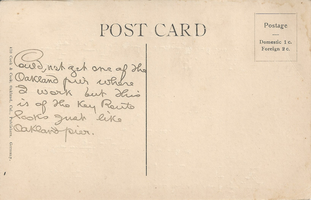 POST CARD
Postage
Domestic 1c.
Foreign 2c.
Could not get one of the
Oakland pier where
I work but this
is of the Key Route
looks just like
Oakland pier.